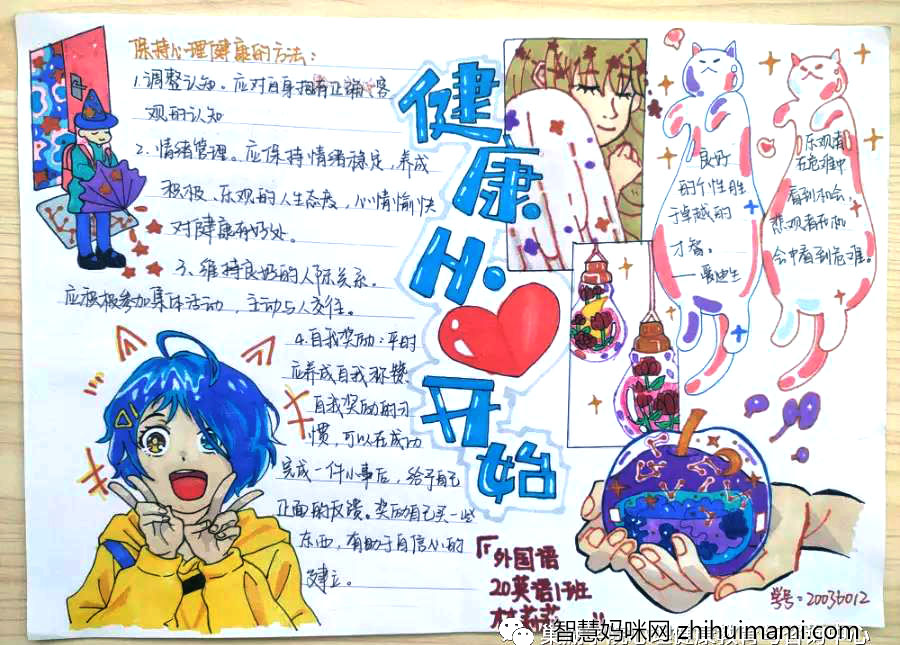 保持心理健康的方法：
1.调整认知。应对自身拥有正确、客
观的认知
2.情绪管理。应保持情绪稳定，养成
积极、乐观的人生态度，心情愉快
对健康有好处。
3、维持良好的人际关系。
应积极参加集体活动，主动与人交往。
4.自我奖励：平时
应养成自我称赞
自我奖励的习
惯，可以在成功
完成一件小事后，给予自己
正面的反馈。奖励自己买一些
东西，有助于自信心的
建立。
健
康
从
开
始
良好
的个性胜
于卓越的
才智。
——爱迪生
乐观者
在危难中
看到机会，
悲观者在机
会中看到危难。
『外国语
20英语1班
学号：20036012
智慧妈咪网 zhihuimami.com